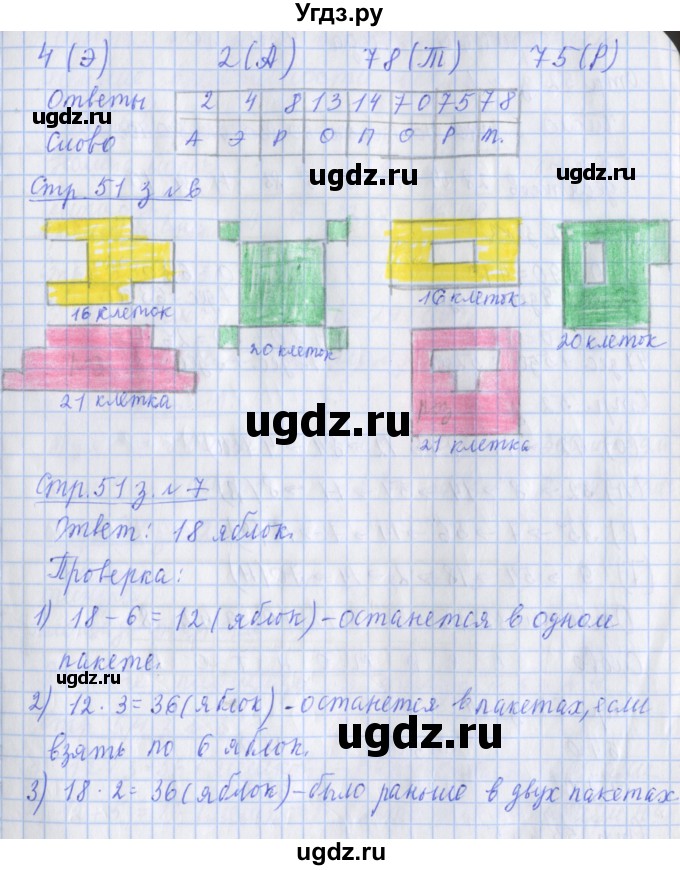 Угдз.ру
4 (Э) 2 (А) 78 (Т) 75 (Р)
Ответы 2 4 8 13 14 70 75 78
ugdz.ru ugdz.ru
Слово А Э Р О П О Р Т.
ugdz.ru
Стр. 51 з №6
16 клеток 16 клеток.
20 клеток 20 клеток
21 клетка
ugdz.ru
21 клетка
ugdz.ru
Стр. 51 з. №7
Ответ: 18 яблок.
ugdz.ru
Проверка:
1) 18 - 6 = 12 (яблок) - останется в одном
пакете.
ugdz.ru
2) 12 · 3 = 36 (яблок) - останется в пакетах, если
ugdz.ru
взять по 6 яблок.
3) 18 · 2 = 36 (яблок) - было раньше в двух пакетах
ugdz.ru